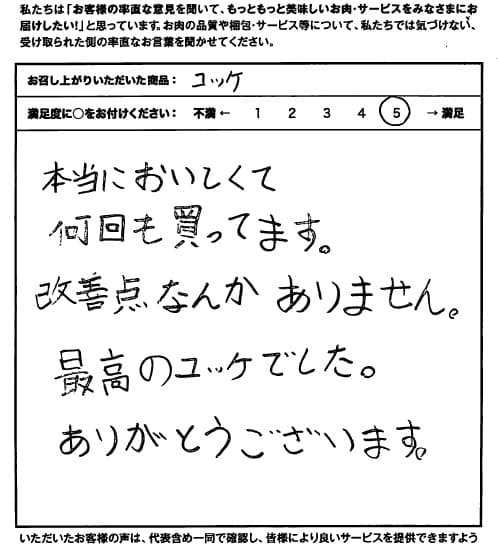 私たちは「お客様の率直な意見を聞いて、もっともっと美味しいお肉・サービスをみなさまにお
届けしたい!」と思っています。お肉の品質や梱包・サービス等について、私たちでは気づけない、
受け取られた側の率直なお言葉を聞かせてください。
お召し上がりいただいた商品： ユッケ
満足度に○をお付けください： 不満 ← 1 2 3 4 5 → 満足
本当においしくて
何回も買ってます。
改善点なんかありません。
最高のユッケでした。
ありがとうございます。
いただいたお客様の声は、代表含め一同で確認し、皆様により良いサービスを提供できますよう